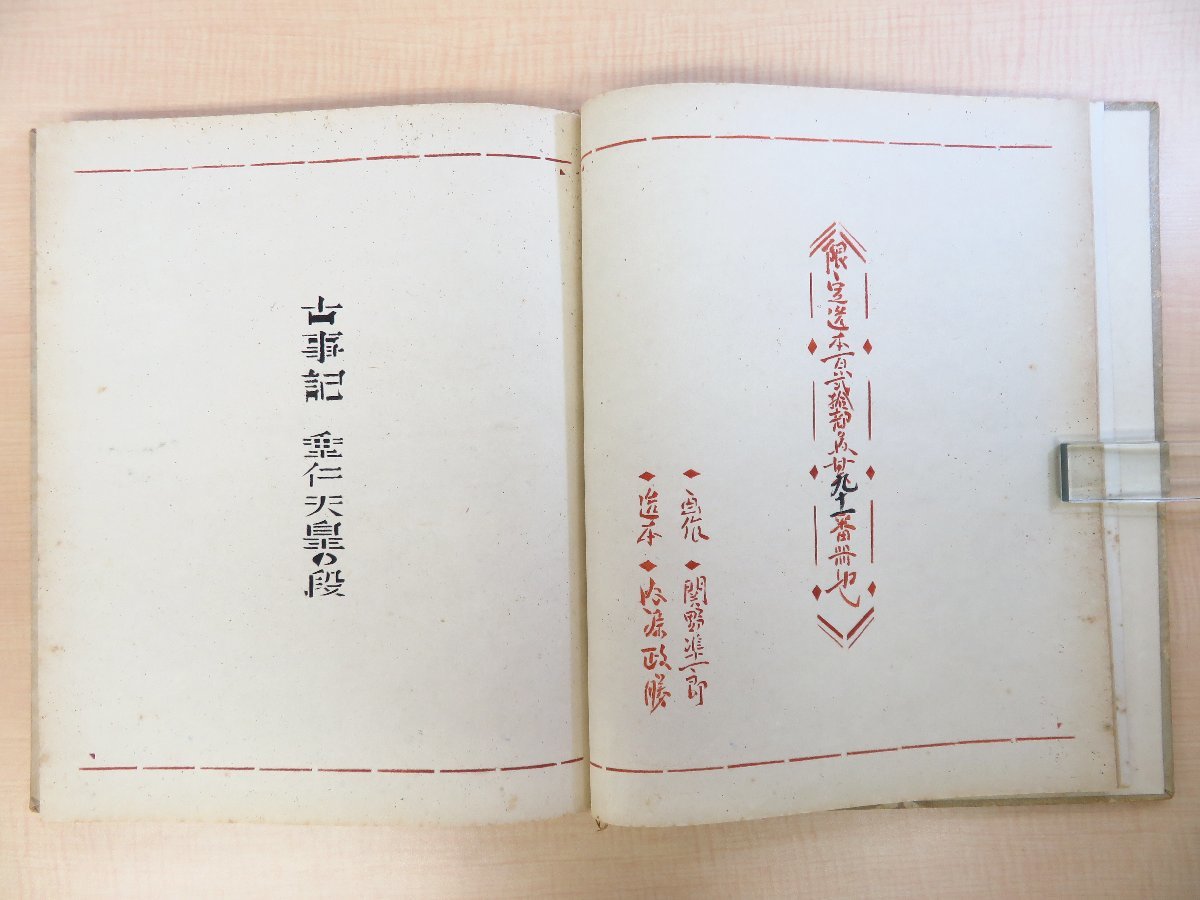 限定造本百弐拾部九十一番冊也
画作 関野凖一郎
造本 内藤政勝
古事記 垂仁天皇の段